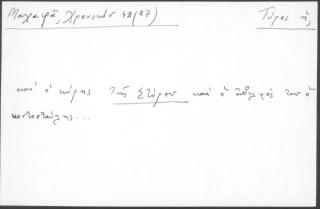 Μαχαιρᾶ, Χρονικόν 42 (27) Τύρος ἡ
καὶ ὁ κύρης τῆς Στύρου καὶ ὁ ἀδελφός του ὁ
κοντοσταύλης...